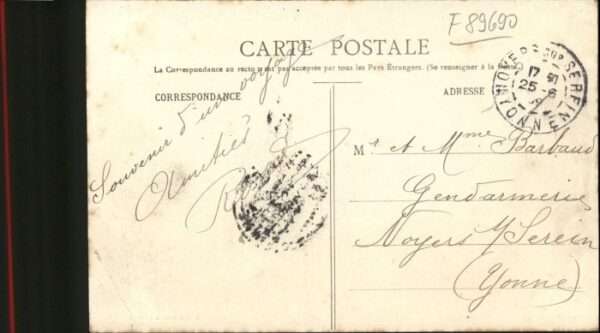 F 89690
CARTE POSTALE
La Correspondance au recto n'est pas acceptée par tous les Pays Étrangers. (Se renseigner à la
CORRESPONDANCE
ADRESSE
Souvenir d'un voyage
Amitiés
NOYERS SUR SEREIN
17
25 - 6
YONNE
Mr et Mme Barbaud
Gendarmerie
Noyers s/ Serein
(Yonne)